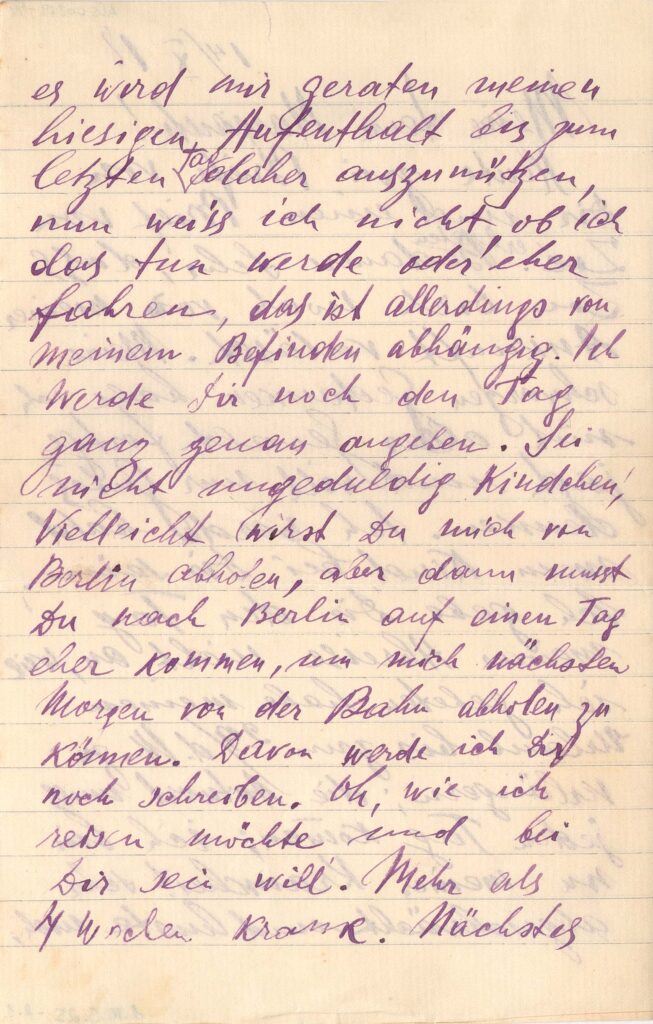 es wird mir geraten meinen
hiesigen Aufenthalt bis zum
letzten Tag daher auszunützen,
nun weiss ich nicht ob ich
das tun werde oder eher
fahren, das ist allerdings von
meinem Befinden abhängig. Ich
werde Dir noch den Tag
ganz genau angeben. Sei
nicht ungeduldig Kindchen,
Vielleicht wirst Du mich von
Berlin abholen, aber dann musst
Du nach Berlin auf einen Tag
eher kommen, um mich nächsten
Morgen von der Bahn abholen zu
können. Davon werde ich Dir
noch schreiben. Oh, wie ich
reisen möchte und bei
Dir sein will. Mehr als
4 Wochen krank. Nächstes